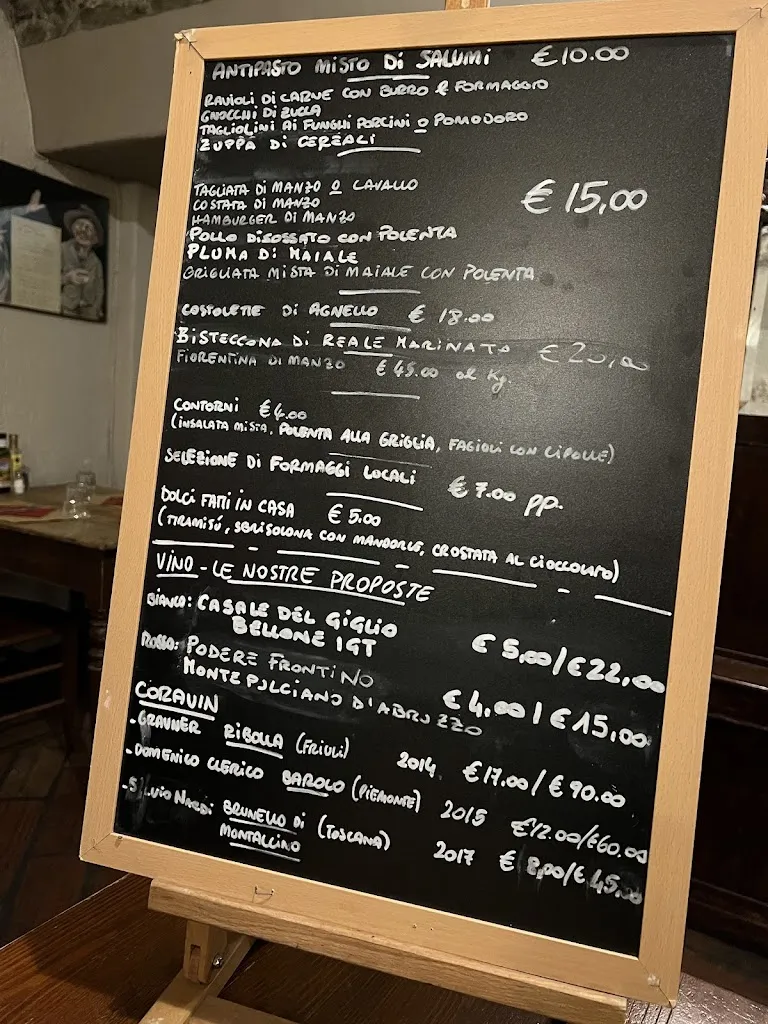 ANTIPASTO MISTO DI SALUMI €10.00
RAVIOLI DI CARNE CON BURRO E FORMAGGIO
GNOCCHI DI ZUCCA
TAGLIOLINI AI FUNGHI PORCINI O POMODORO
ZUPPA DI CEREALI
TAGLIATA DI MANZO O CAVALLO
COSTATA DI MANZO €15,00
HAMBURGER DI MANZO
POLLO DISOSSATO CON POLENTA
PLUMA DI MAIALE
GRIGLIATA MISTA DI MAIALE CON POLENTA
COSTOLETTE DI AGNELLO € 18.00
BISTECCONA DI REALE MARINATO € 20,00
FIORENTINA DI MANZO € 45.00 al Kg.
CONTORNI €4.00
(INSALATA MISTA, POLENTA ALLA GRIGLIA, FAGIOLI CON CIPOLLE)
SELEZIONE DI FORMAGGI LOCALI € 7.00 pp.
DOLCI FATTI IN CASA € 5.00
(TIRAMISÚ, SBRISOLONA CON MANDORLE, CROSTATA AL CIOCCOLATO)
VINO - LE NOSTRE PROPOSTE
BIANCO: CASALE DEL GIGLIO
BELLONE IGT € 5,00/€22,00
ROSSO: PODERE FRONTINO
MONTEPULCIANO D'ABRUZZO € 4,00/€15,00
CORAVIN
-GRAVNER RIBOLLA (FRIULI) 2014 €17.00/€90.00
-DOMENICO CLERICO BAROLO (PIEMONTE) 2015 €12.00/€60.00
-SILVIO NARDI BRUNELLO DI (TOSCANA) 2017 € 8,00/€45,00
MONTALCINO